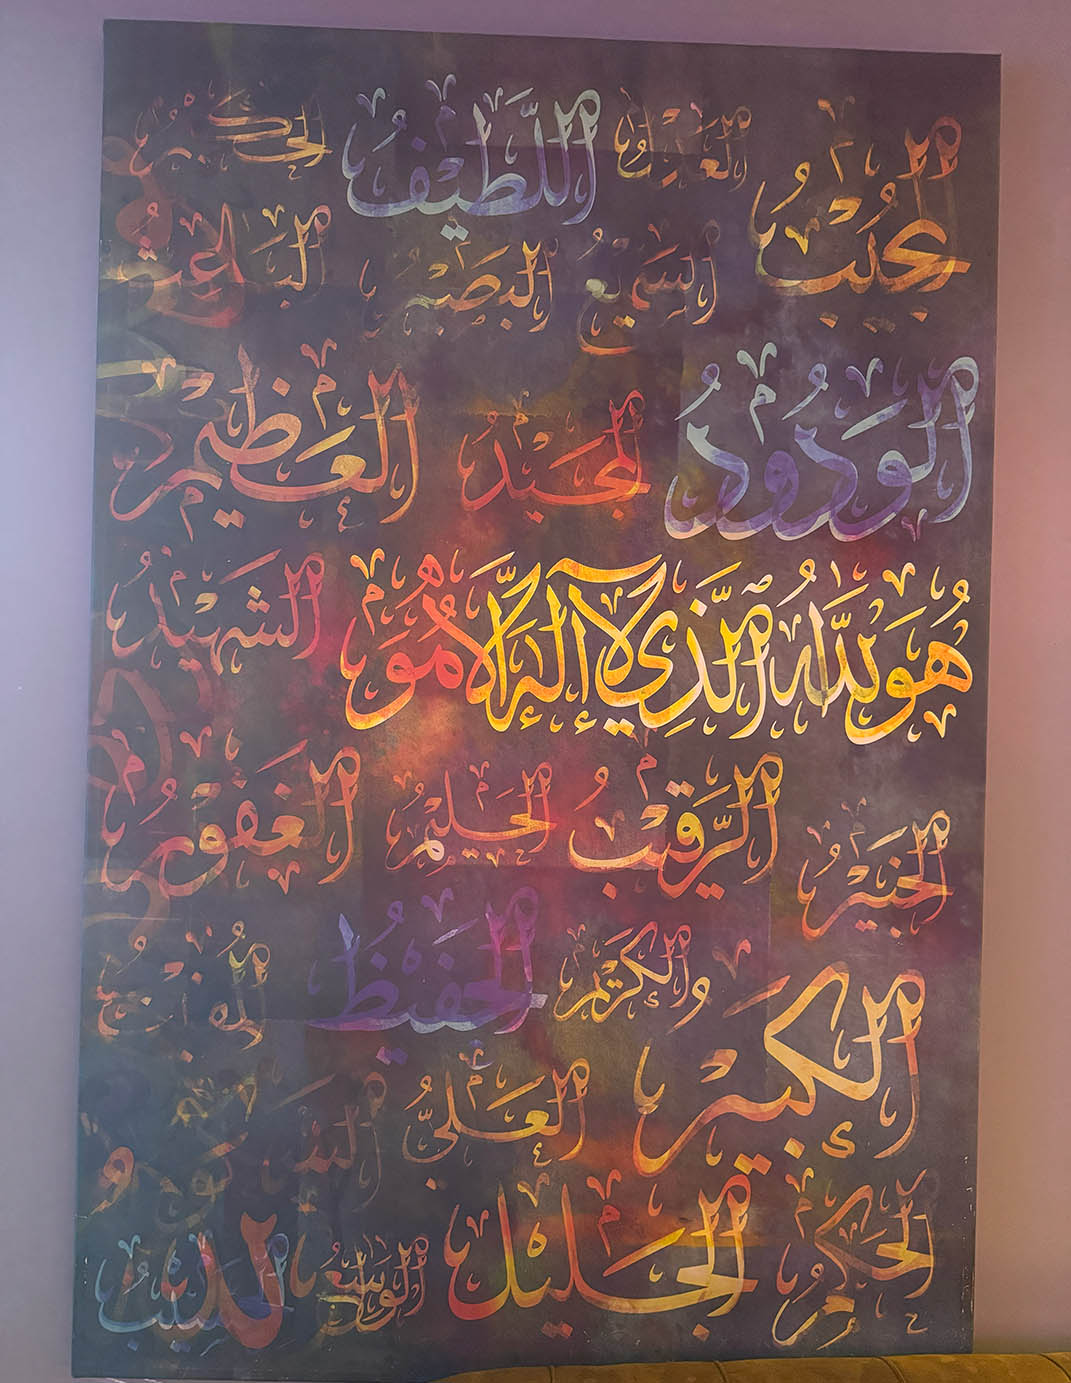 المجيب العدل اللطيف الحكم
السميع البصير الباعث
الودود المجيد العظيم
هو الله الذي لا إله إلا هو الشهيد
الرقيب الحليم الغفور
الخبير
والكريم الحفيظ المقيت
الكبير العلي
الحكيم الجليل الواسع الحسيب